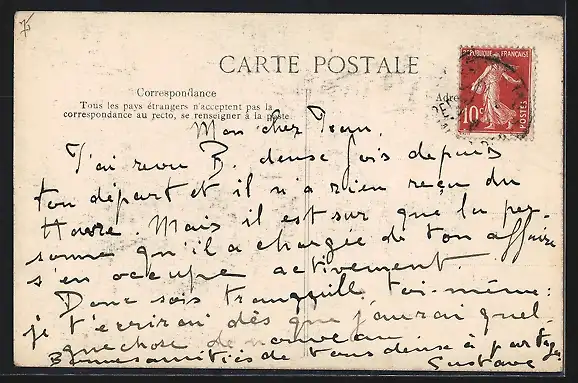 CARTE POSTALE
Correspondance
Tous les pays étrangers n'acceptent pas la
correspondance au recto, se renseigner à la poste
Adre
REPUBLIQUE FRANÇAISE
10c
POSTES
Mon cher Jean,
J'ai revu B. deux fois depuis
ton départ et il n'a rien reçu du
Havre. Mais il est sur que la per-
sonne qu'il a chargée de ton affaire
s'en occupe activement.
Donc sois tranquille toi-même:
je t'écrirai dès que j'aurai quel-
que chose de nouveau
Bonnes amitiés de tous deux à partager
Gustave